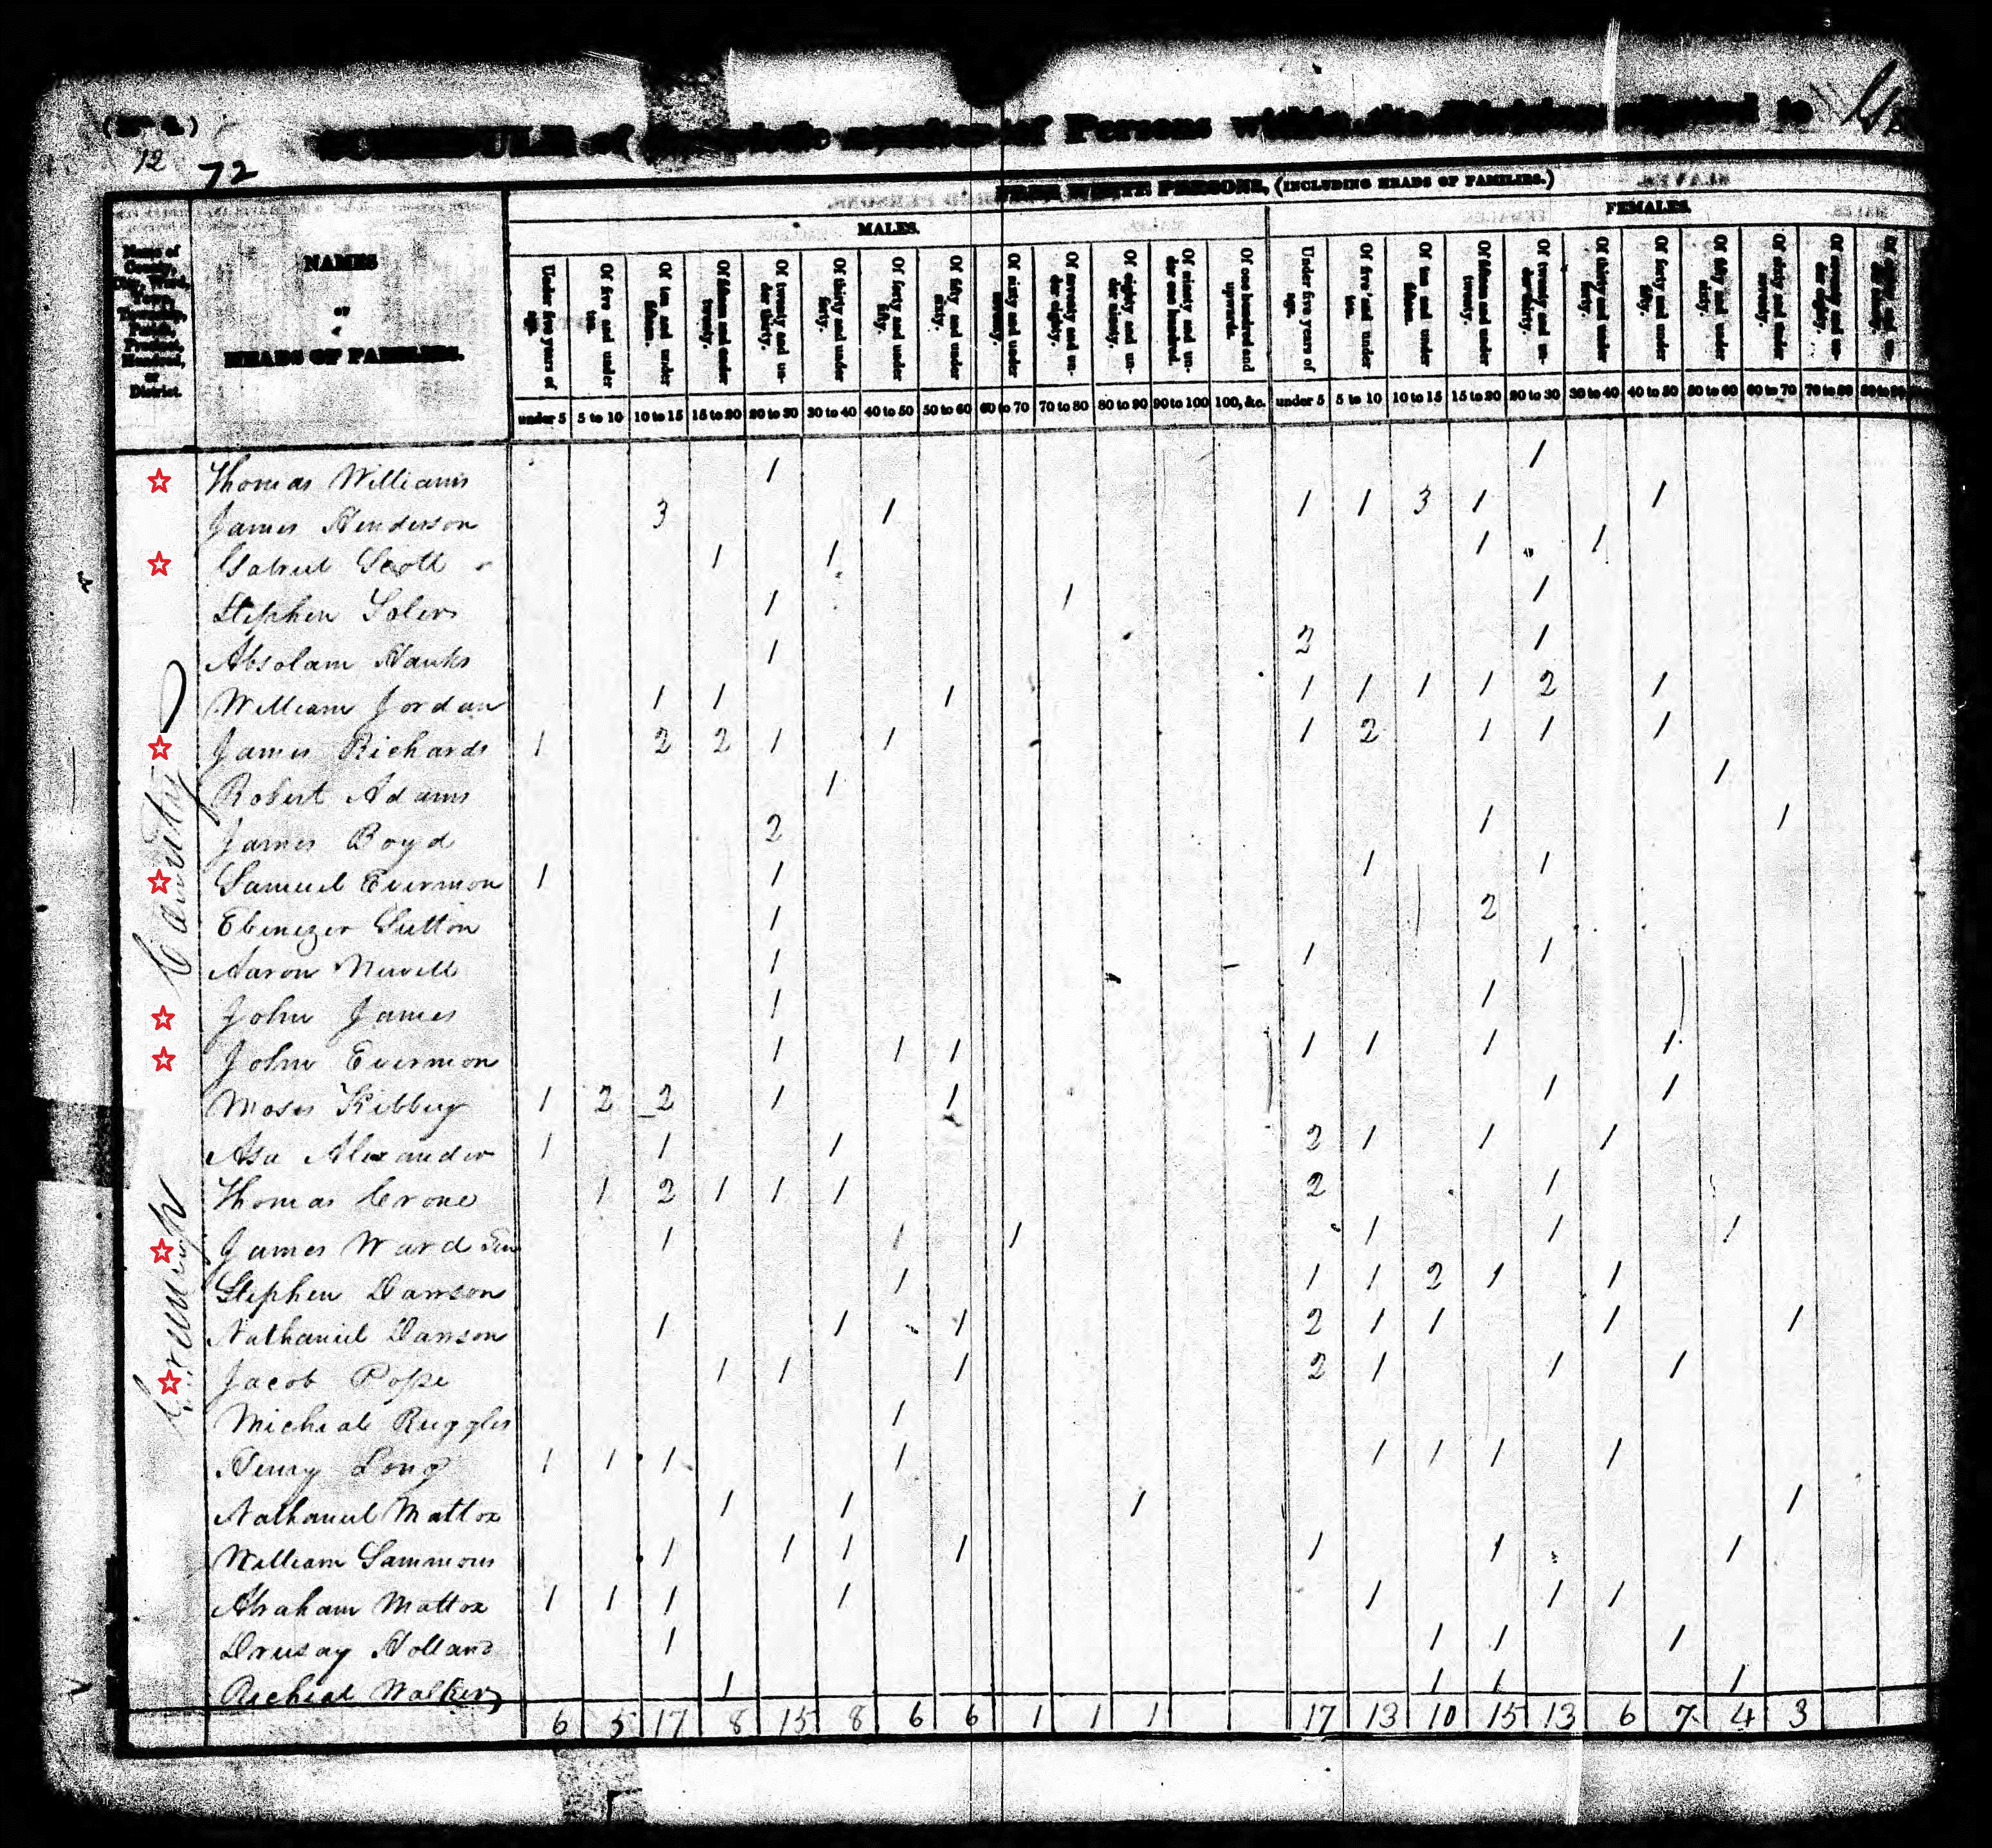 (No. 1.)
12 72
SCHEDULE of the whole number of Persons within the Division allotted to
FREE WHITE PERSONS, (INCLUDING HEADS OF FAMILIES.)
MALES. FEMALES.
Name of County, City, Ward, Town, Township, Parish, Precinct, Hundred, or District.
NAMES
OF
HEADS OF FAMILIES.
Under five years of age. Of five and under ten. Of ten and under fifteen. Of fifteen and under twenty. Of twenty and under thirty. Of thirty and under forty. Of forty and under fifty. Of fifty and under sixty. Of sixty and under seventy. Of seventy and under eighty. Of eighty and under ninety. Of ninety and under one hundred. Of one hundred and upwards. Under five years of age. Of five and under ten. Of ten and under fifteen. Of fifteen and under twenty. Of twenty and under thirty. Of thirty and under forty. Of forty and under fifty. Of fifty and under sixty. Of sixty and under seventy. Of seventy and under eighty.
under 5 5 to 10 10 to 15 15 to 20 20 to 30 30 to 40 40 to 50 50 to 60 60 to 70 70 to 80 80 to 90 90 to 100 100, &c. under 5 5 to 10 10 to 15 15 to 20 20 to 30 30 to 40 40 to 50 50 to 60 60 to 70 70 to 80 80 to 90
Greenup County
Thomas Williams 1 1
James Henderson 3 1 1 1 3 1 1
Gabriel Scott 1 1 1 1
Stephen 1 1 1
Absolam Hanks 1 2 1
William Jordan 1 1 1 1 1 1 1 2 1
James Richards 1 2 2 1 1 1 2 1 1 1
Robert Adams 1 1
James Boyd 2 1 1
Samuel Evermon 1 1 1 1
Ebenezer Sutton 1 2
Aaron Newell 1 1 1
John James 1 1
John Evermon 1 1 1 1 1 1 1
Moses Kibbey 1 2 2 1 1 1 1
Asa Alexander 1 1 1 2 1 1 1
Thomas Crone 1 2 1 1 1 2 1
James Ward Sen 1 1 1 1 1 1
Stephen Dawson 1 1 1 2 1 1
Nathaniel Dawson 1 1 1 2 1 1 1 1
Jacob Pope 1 1 1 2 1 1 1
Micheal Ruggles 1
Henry Long 1 1 1 1 1 1 1 1
Nathaniel Mattox 1 1 1 1
William Sammons 1 1 1 1 1 1 1
Abraham Mattox 1 1 1 1 1 1 1
Drusay Holland 1 1 1 1
Racheal Walker 1 1 1 1
6 5 17 8 15 8 6 6 1 1 1 17 13 10 15 13 6 7 4 3